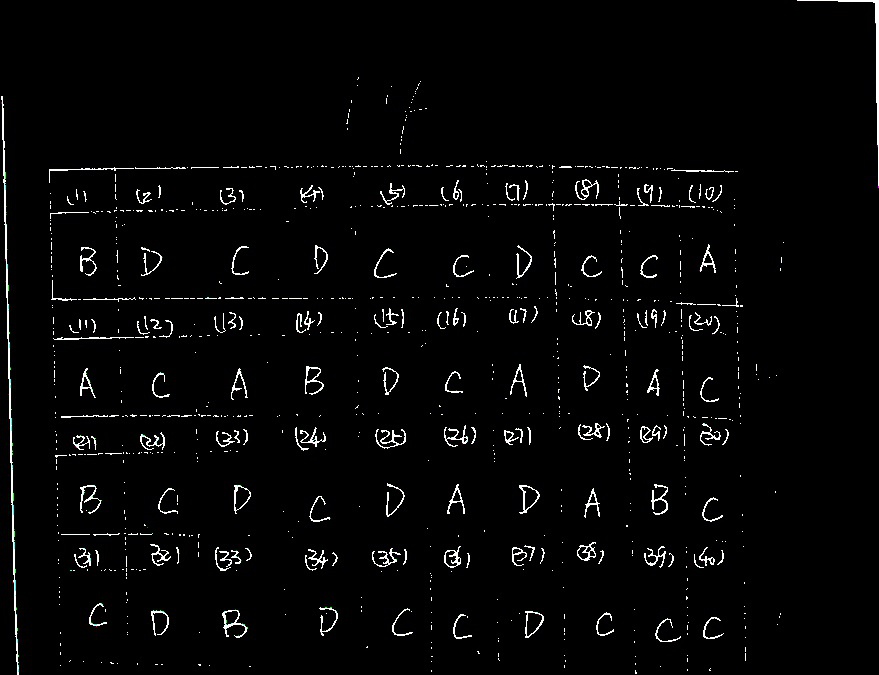 (1) (2) (3) (4) (5) (6) (7) (8) (9) (10)
B D C D C C D C C A
(11) (12) (13) (14) (15) (16) (17) (18) (19) (20)
A C A B D C A D A C
(21) (22) (23) (24) (25) (26) (27) (28) (29) (30)
B C D C D A D A B C
(31) (32) (33) (34) (35) (36) (37) (38) (39) (40)
C D B D C C D C C C